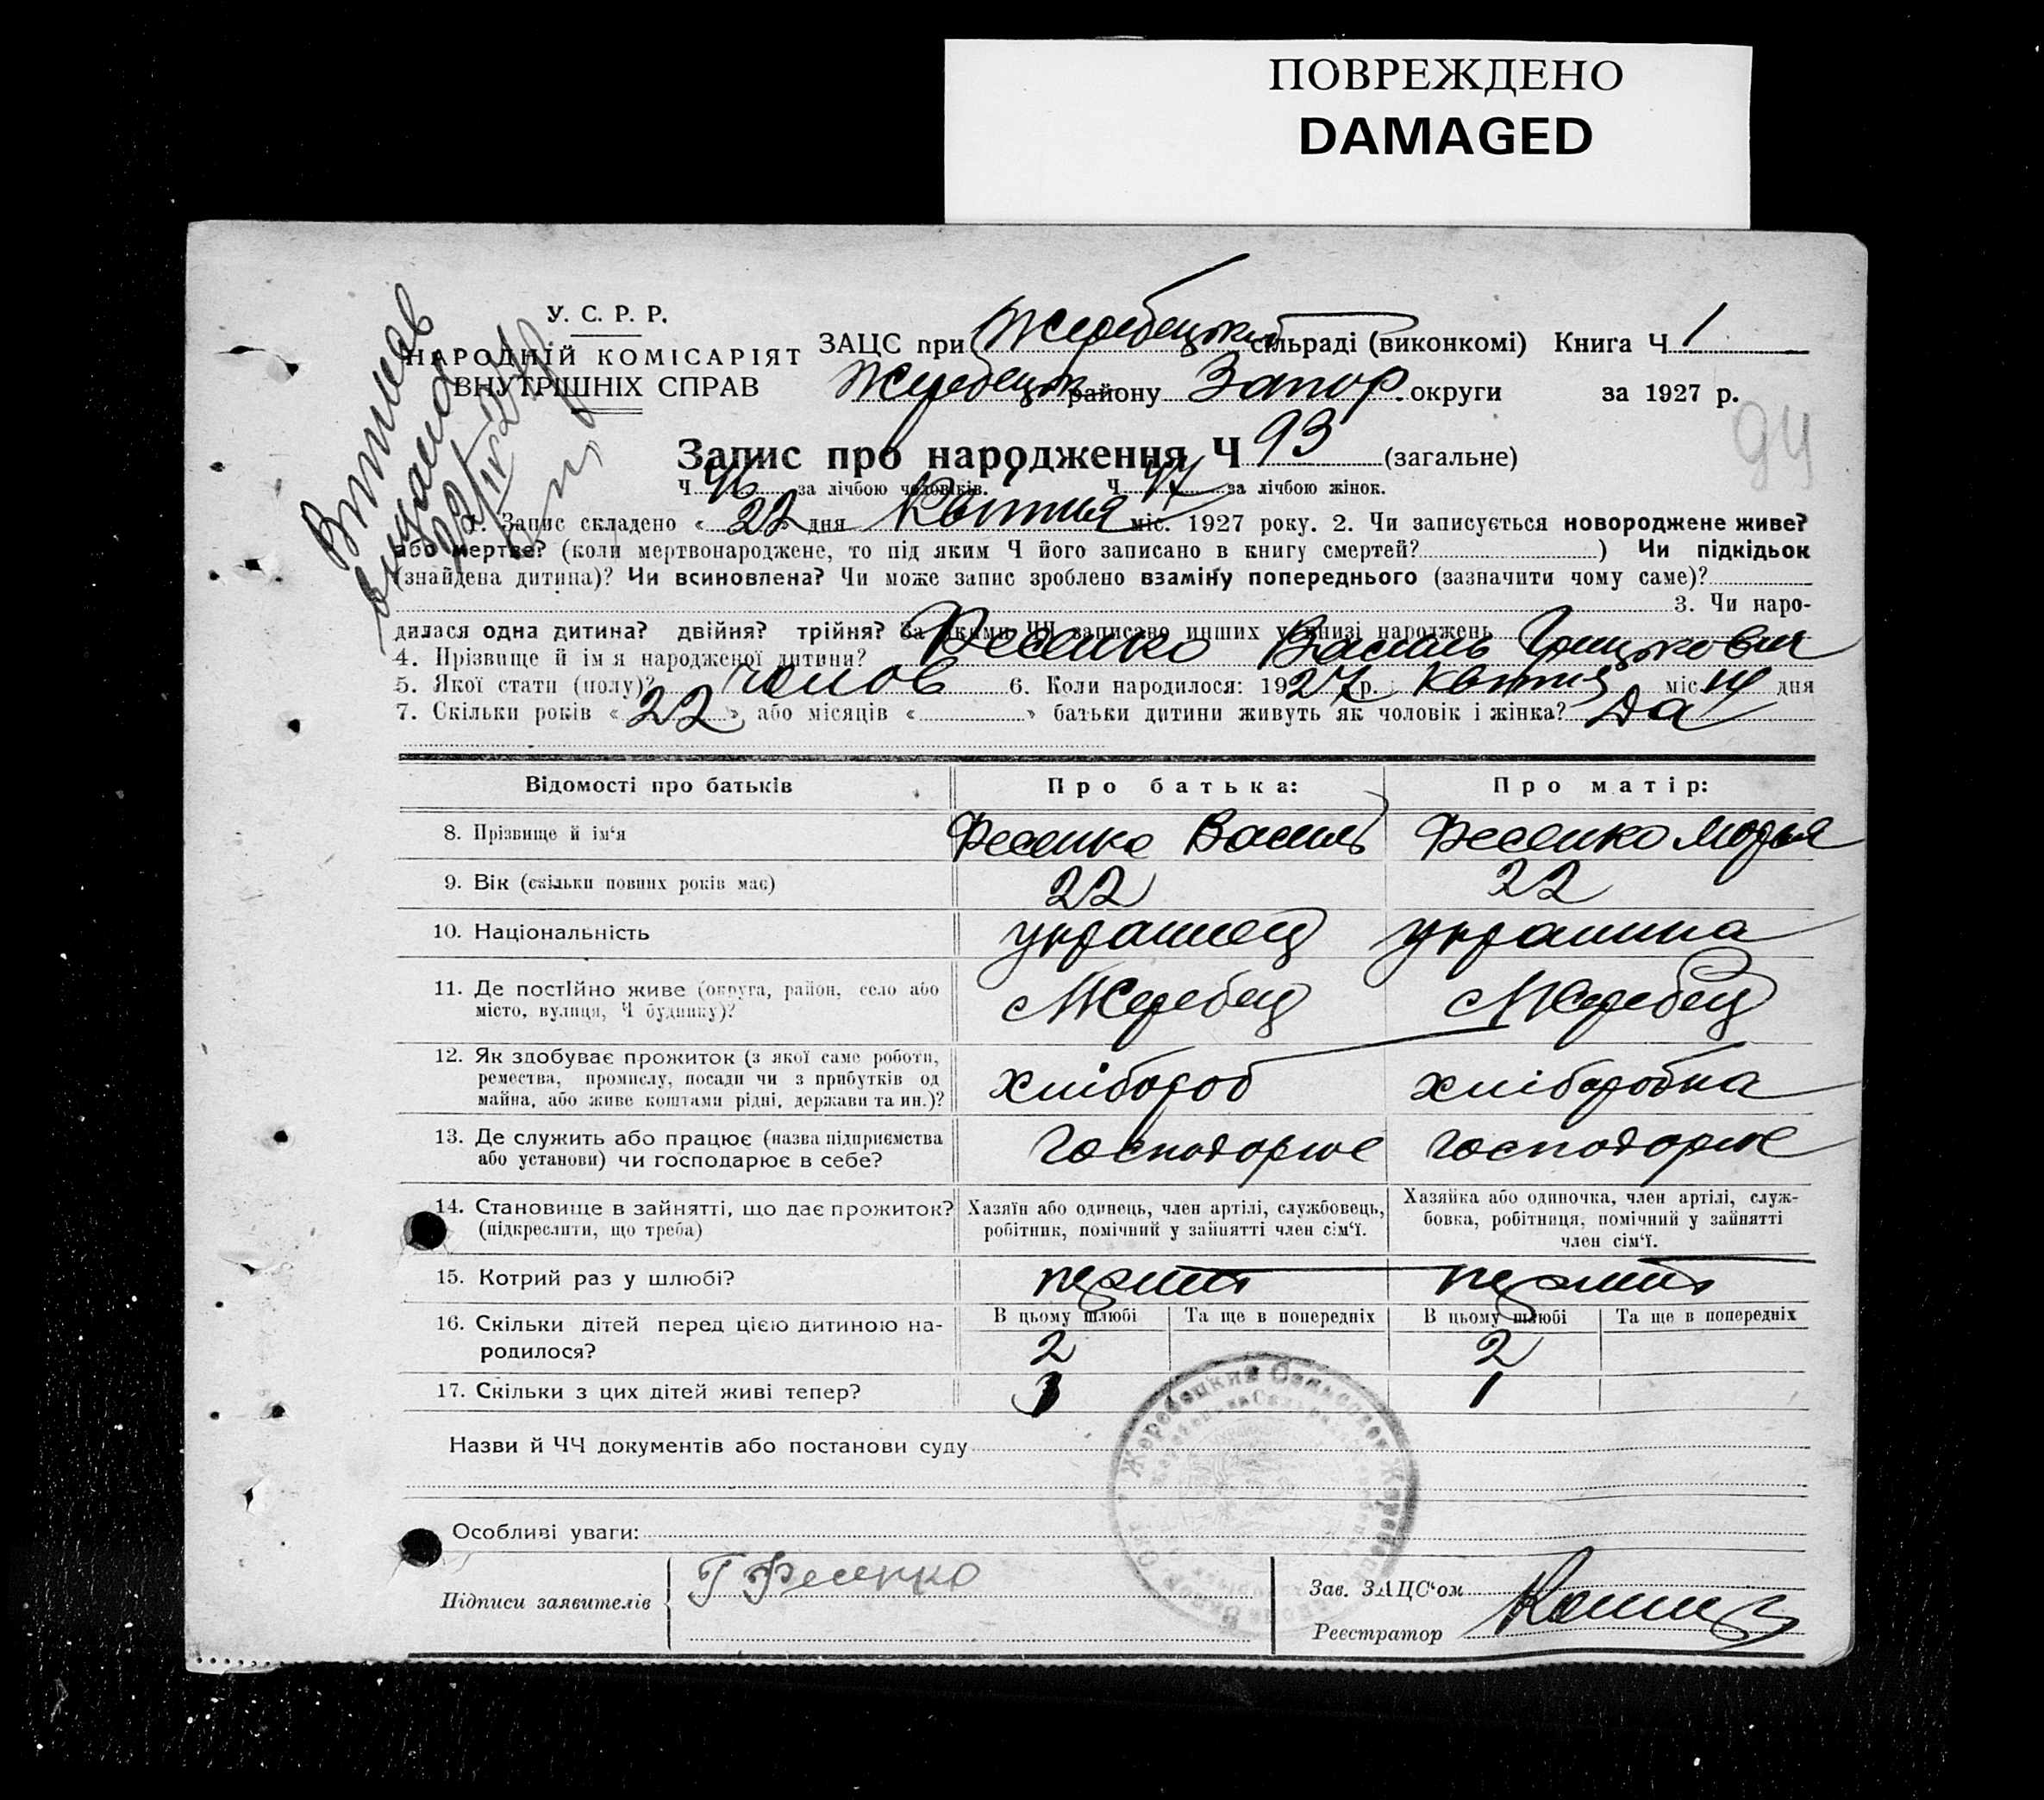 ПОВРЕЖДЕНО
DAMAGED
У. С. Р. Р.
НАРОДНІЙ КОМІСАРІЯТ
ВНУТРІШНІХ СПРАВ
ЗАЦС при Жеребецькій сільраді (виконкомі) Книга Ч 1
Жеребецьк району Запор. округи за 1927 р.
94
Запис про народження Ч 93 (загальне)
Ч 46 за лічбою чоловіків. Ч 47 за лічбою жінок.
1. Запис складено « 22 » дня Квітня міс. 1927 року. 2. Чи записується новороджене живе?
або мертве? (коли мертвонароджене, то під яким Ч його записано в книгу смертей? ) Чи підкідьок
(знайдена дитина)? Чи всиновлена? Чи може запис зроблено взаміну попереднього (зазначити чому саме)?
3. Чи наро-
дилася одна дитина? двійня? трійня? За якими ЧЧ записано инших у книзі народжень
4. Прізвище й ім я народженої дитини? Фесенко Василь Грицькович
5. Якої стати (полу)? чолов 6. Коли народилося: 1927 р. Квітня міс. 14 дня
7. Скільки років « 22 » або місяців « » батьки дитини живуть як чоловік і жінка? Да
Відомості про батьків Про батька: Про матір:
8. Прізвище й ім‘я Фесенко Василь Фесенко Марья
9. Вік (скільки повних років має) 22 22
10. Національність украинец украинка
11. Де постійно живе (округа, район, село або
місто, вулиця, Ч будинку)? с Жеребец с Жеребец
12. Як здобуває прожиток (з якої саме роботи,
ремества, промислу, посади чи з прибутків од
майна, або живе коштами рідні, держави та ин.)? хлібороб хліборобка
13. Де служить або працює (назва підприємства
або установи) чи господарює в себе? господарює господарює
14. Становище в зайнятті, що дає прожиток?
(підкреслити, що треба)
Хазяїн або одинець, член артілі, службовець,
робітник, помічний у зайнятті член сім‘ї.
Хазяйка або одиночка, член артілі, служ-
бовка, робітниця, помічний у зайнятті
член сім‘ї.
15. Котрий раз у шлюбі?
В цьому шлюбі Та ще в попередніх В цьому шлюбі Та ще в попередніх
16. Скільки дітей перед цією дитиною на-
родилося? 2 2
17. Скільки з цих дітей живі тепер? 1 1
Назви й ЧЧ документів або постанови суду
Особливі уваги:
Підписи заявителів Г Фесенко
Зав. ЗАЦС‘ом
Реєстратор